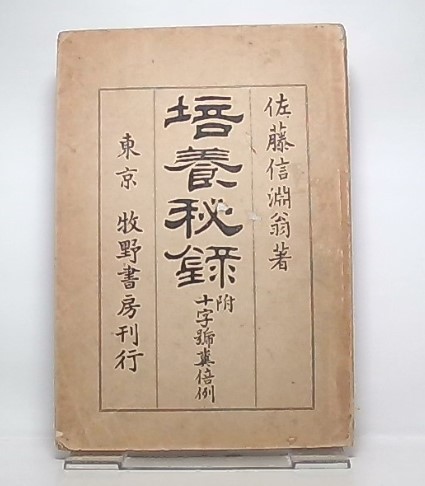 佐藤信淵翁著
培養秘録
附
十字號糞倍例
東京 牧野書房刊行